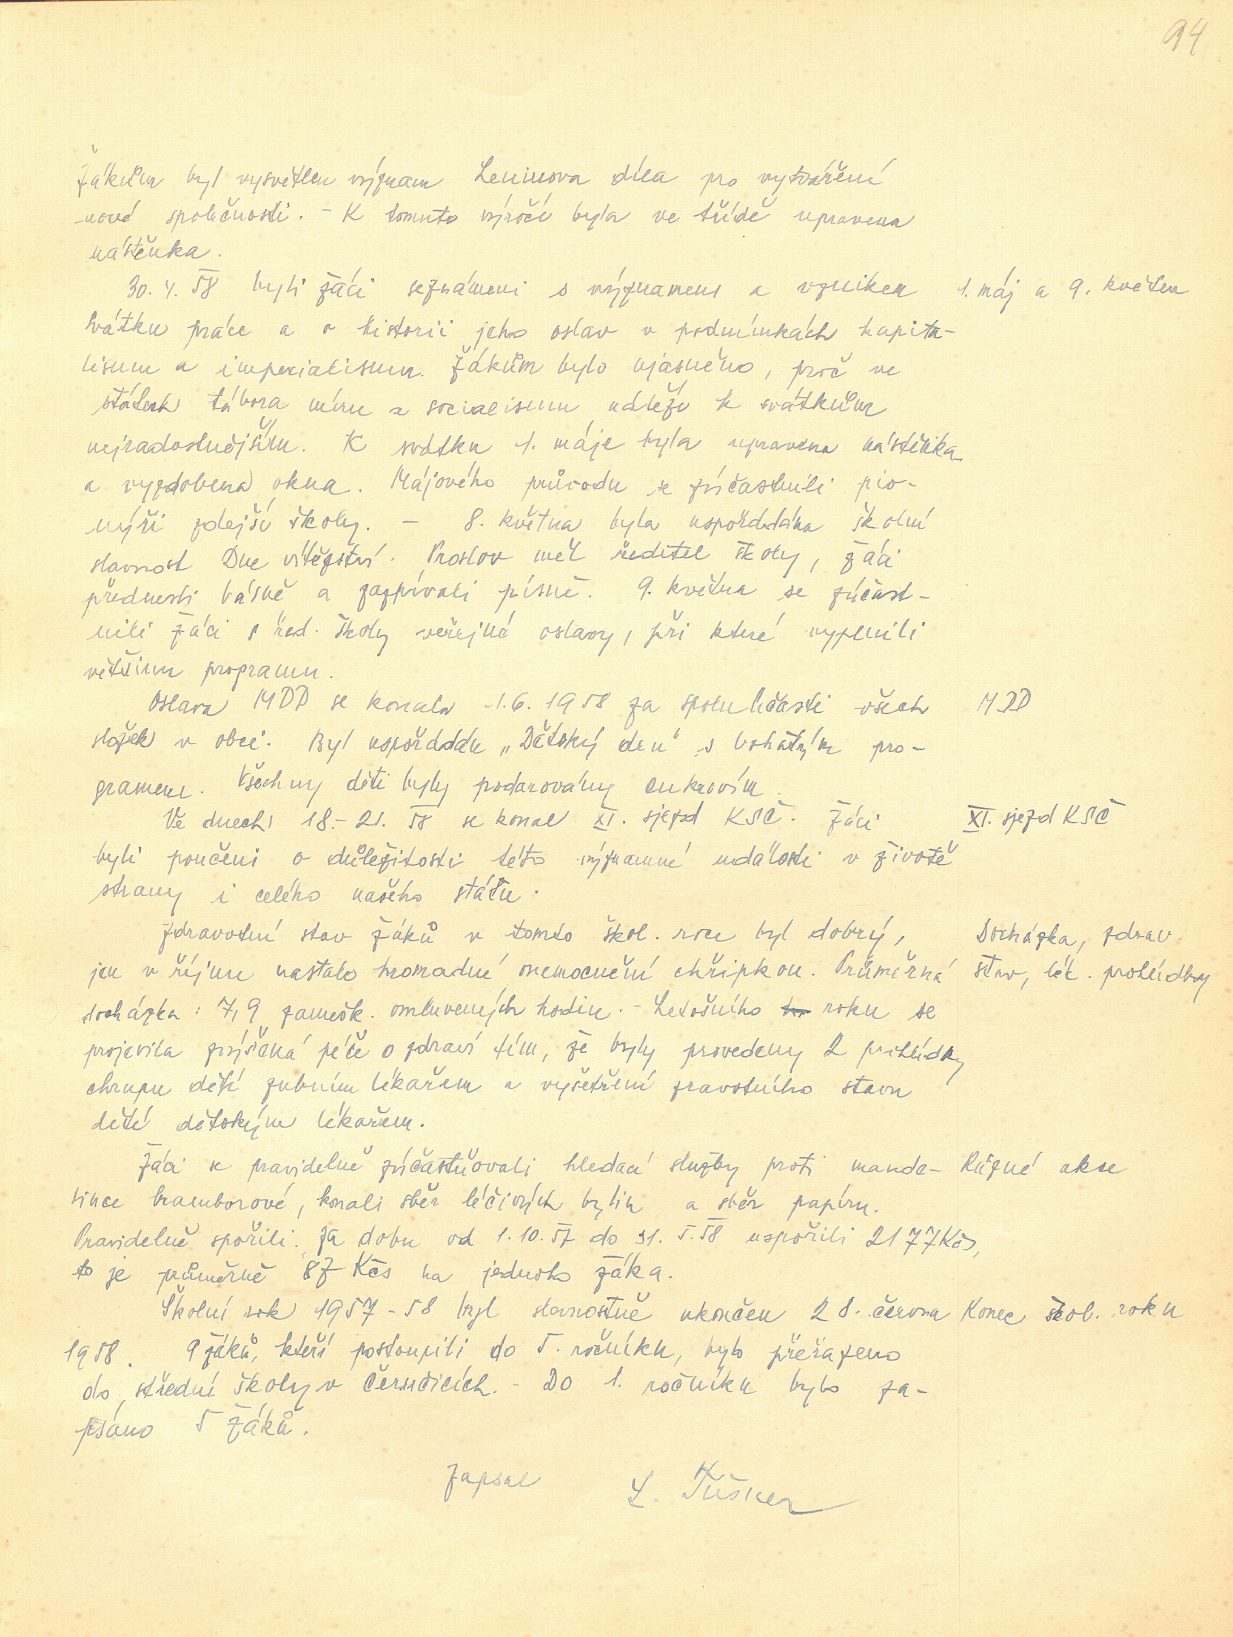 94
Žákům byl vysvětlen význam Leninova díla pro vytváření
nové společnosti. - K tomuto výročí byla ve třídě upravena
nástěnka.
30. 4. 58 byli žáci seznámeni s významem a vznikem
1. máj a 9. květen
Svátku práce a o historii jeho oslav v podmínkách kapita-
lismu a imperialismu. Žákům bylo ujasněno, proč ve
státech tábora míru a socialismu náleží k svátkům
nejradostnějším. K svátku 1. máje byla upravena nástěnka
a vyzdobena okna. Májového průvodu se zúčastnili pio-
nýři zdejší školy. - 8. května byla uspořádána školní
slavnost Dne vítězství. Proslov měl ředitel školy, žáci
přednesli básně a zazpívali písně. 9. května se zúčast-
nili žáci s řed. školy veřejné oslavy, při které vyplnili
většinu programu.
Oslava MDD se konala 1. 6. 1958 za spoluúčasti všech
MDD
složek v obci. Byl uspořádán „Dětský den" s bohatým pro-
gramem. Všechny děti byly podarovány cukrovím.
Ve dnech 18.-21. 58 se konal XI. sjezd KSČ. Žáci
XI. sjezd KSČ
byli poučeni o důležitosti této významné události v životě
strany i celého našeho státu.
Zdravotní stav žáků v tomto škol. roce byl dobrý,
Docházka, zdrav.
jen v říjnu nastalo hromadné onemocnění chřipkou. Průměrná
stav, lék. prohlídky
docházka: 7,9 zamešk. omluvených hodin. - Letošního roku se
projevila zvýšená péče o zdraví tím, že byly provedeny 2 prohlídky
chrupu dětí zubním lékařem a vyšetření zravotního stavu
dětí dětským lékařem.
Žáci se pravidelně zúčastňovali hledací služby proti mande-
Různé akce
lince bramborové, konali sběr léčivých bylin a sběr papíru.
Pravidelně spořili. Za dobu od 1. 10. 57 do 31. 5. 58 uspořili 2177 Kčs,
to je průměrně 87 Kčs na jednoho žáka.
Školní rok 1957-58 byl slavnostně ukončen 28. června
Konec škol. roku
1958. 9 žáků, kteří postoupili do 5. ročníku, bylo přeřazeno
do střední školy v Černčicích. - Do 1. ročníku bylo za-
psáno 5 žáků.
Zapsal